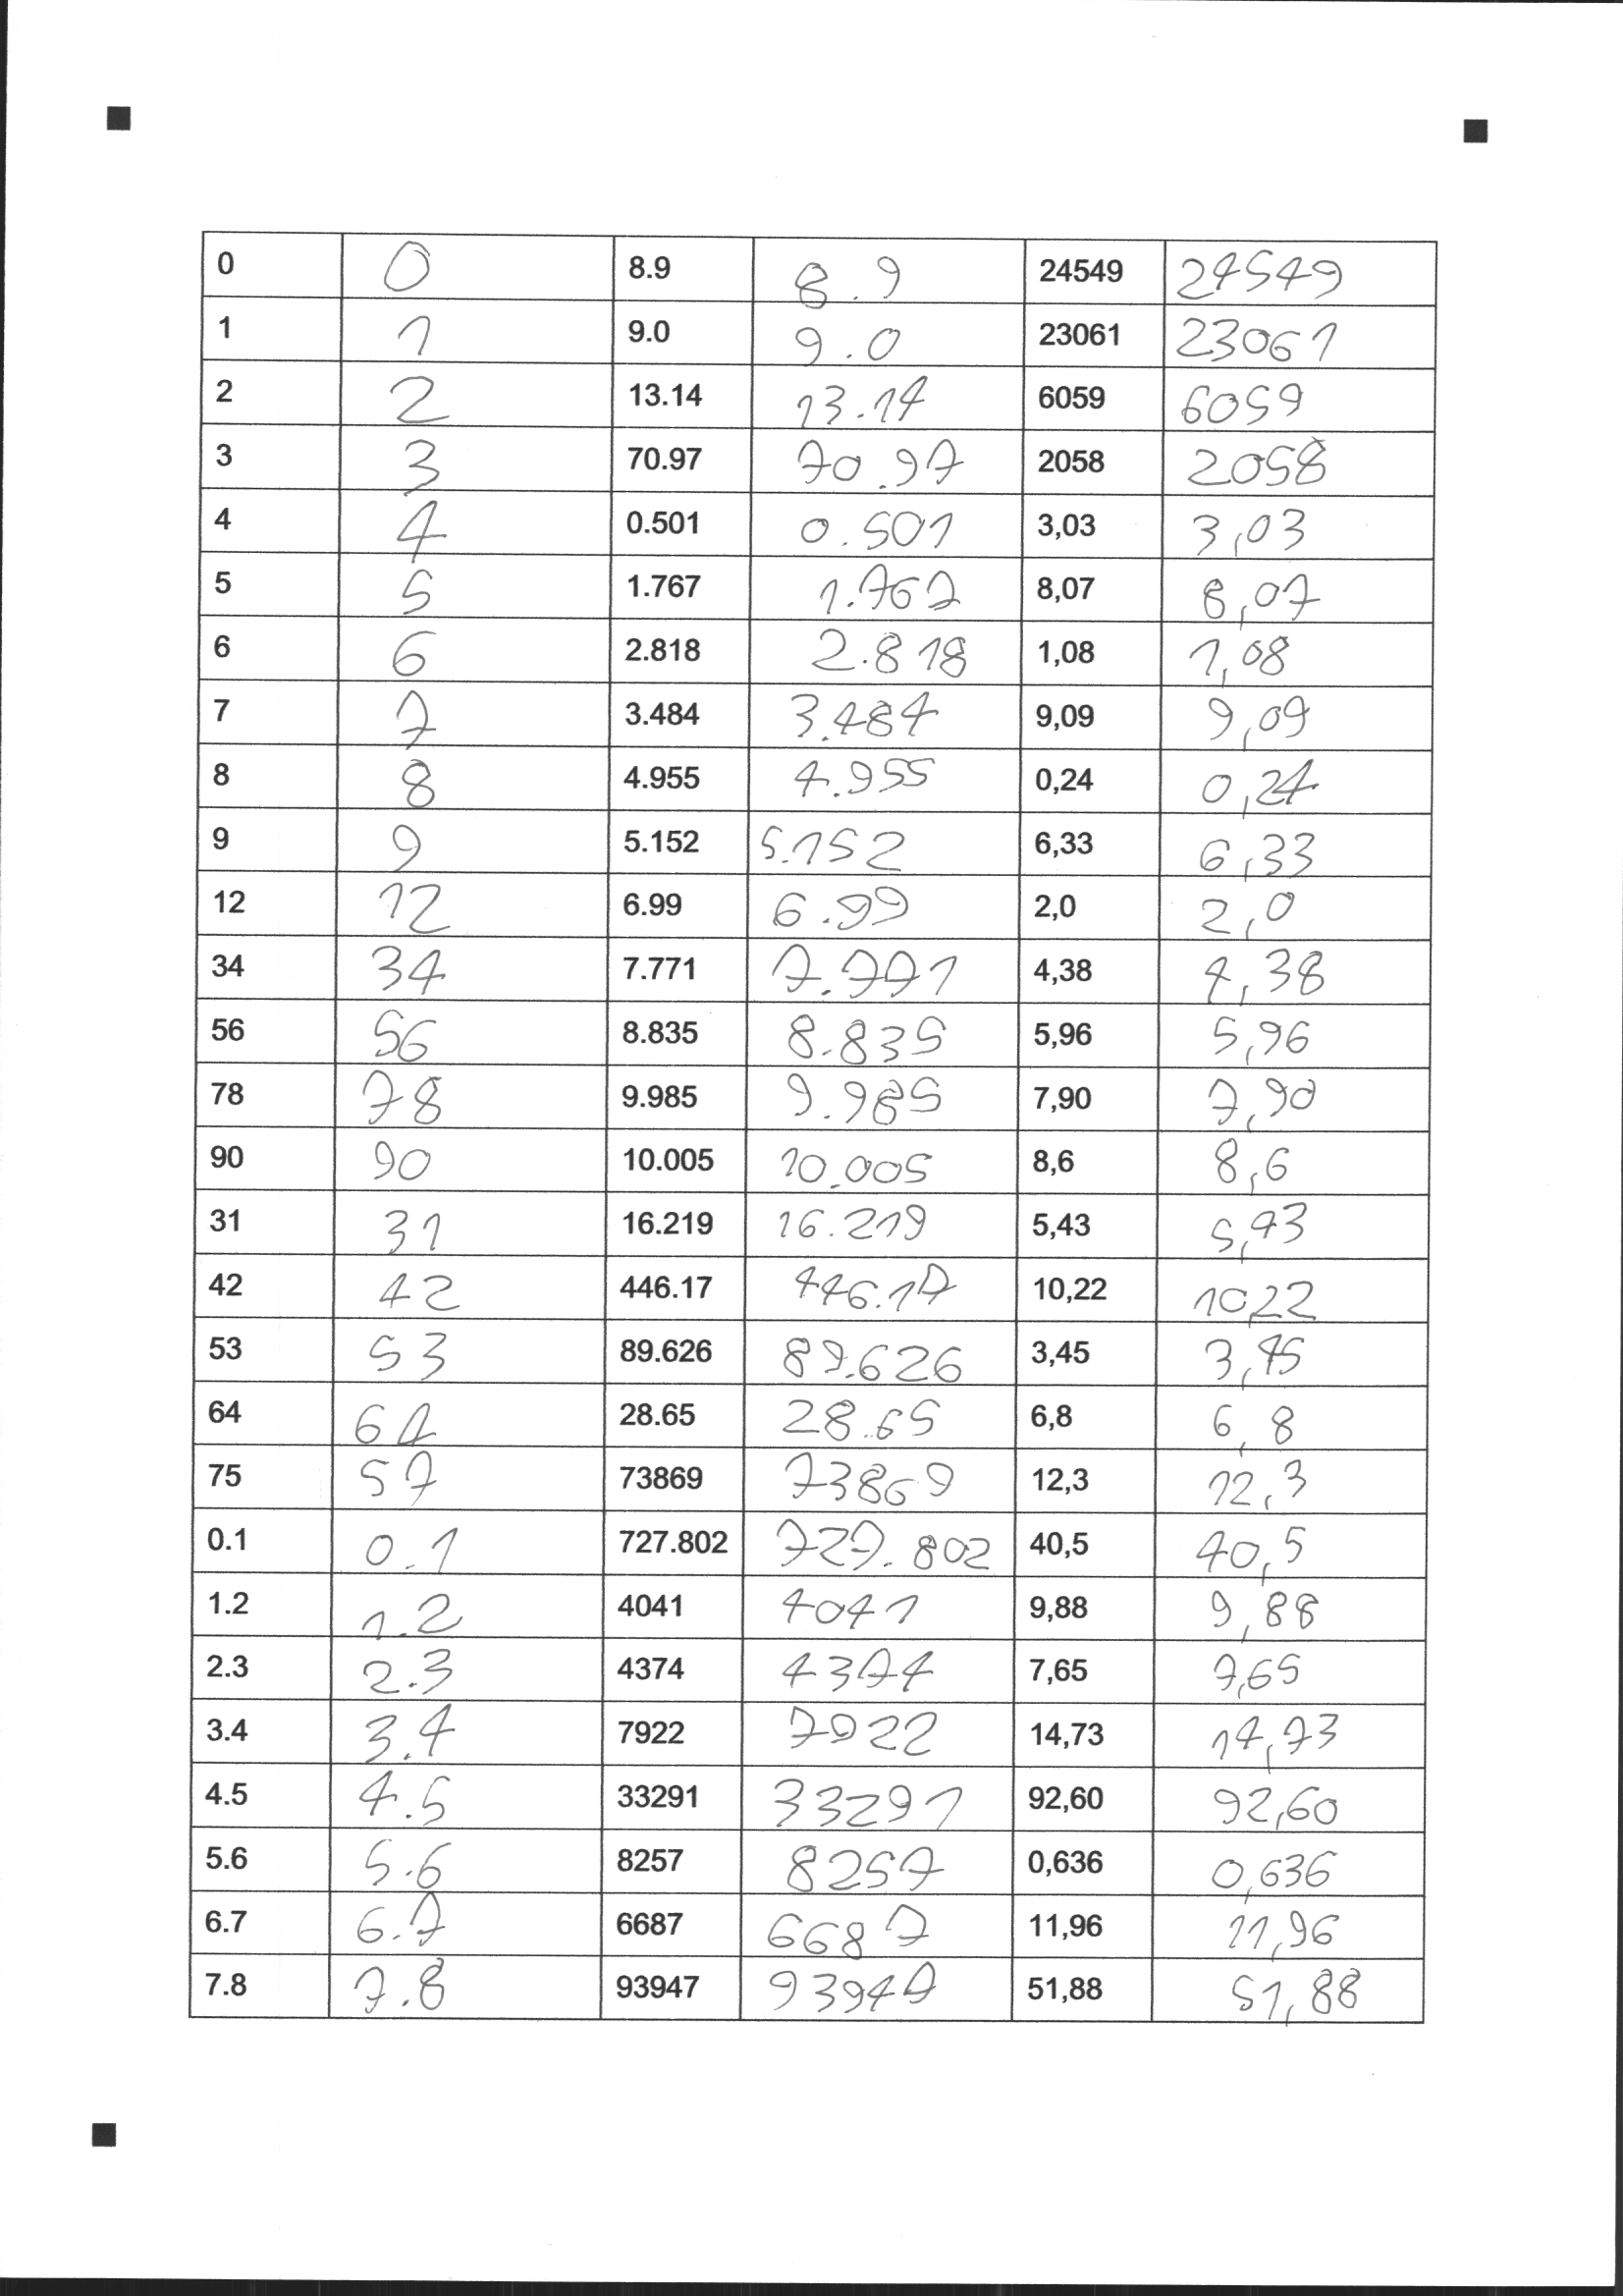 0 0 8.9 8.9 24549 24549
1 1 9.0 9.0 23061 23061
2 2 13.14 13.14 6059 6059
3 3 70.97 70.97 2058 2058
4 4 0.501 0.501 3,03 3,03
5 5 1.767 1.767 8,07 8,07
6 6 2.818 2.818 1,08 1,08
7 7 3.484 3.484 9,09 9,09
8 8 4.955 4.955 0,24 0,24
9 9 5.152 5.152 6,33 6,33
12 12 6.99 6.99 2,0 2,0
34 34 7.771 7.771 4,38 4,38
56 56 8.835 8.835 5,96 5,96
78 78 9.985 9.985 7,90 7,90
90 90 10.005 10.005 8,6 8,6
31 31 16.219 16.219 5,43 5,43
42 42 446.17 446.17 10,22 10,22
53 53 89.626 89.626 3,45 3,45
64 64 28.65 28.65 6,8 6,8
75 57 73869 73869 12,3 12,3
0.1 0.1 727.802 727.802 40,5 40,5
1.2 1.2 4041 4041 9,88 9,88
2.3 2.3 4374 4374 7,65 7,65
3.4 3.4 7922 7922 14,73 14,73
4.5 4.5 33291 33291 92,60 92,60
5.6 5.6 8257 8257 0,636 0,636
6.7 6.7 6687 6687 11,96 11,96
7.8 7.8 93947 93947 51,88 51,88